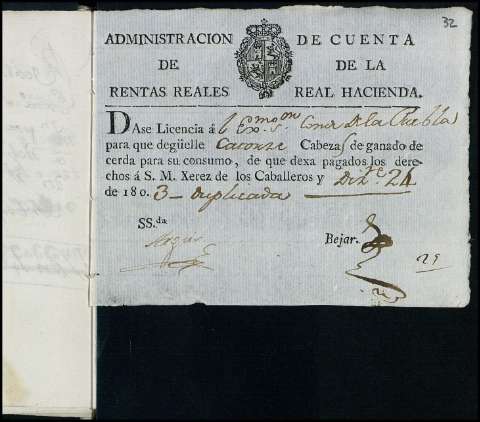 32
ADMINISTRACION DE CUENTA
DE DE LA
RENTAS REALES REAL HACIENDA.
DAse Licencia á l Exmo. Sor. Conde de la Puebla
para que degüelle Catorze Cabezas de ganado de
cerda para su consumo, de que dexa pagados los dere-
chos á S. M. Xerez de los Caballeros y Dizre. 24
de 180. 3 - Duplicada
SS.da
Bejar.